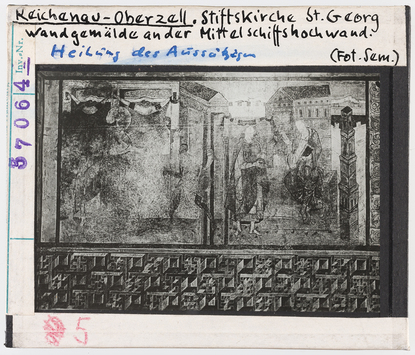 Reichenau-Oberzell. Stiftskirche St. Georg
Wandgemälde an der Mittelschiffshochwand.
Heilung des Aussätzigen
(Fot. Sem.)
Inv.-Nr.
57064
5